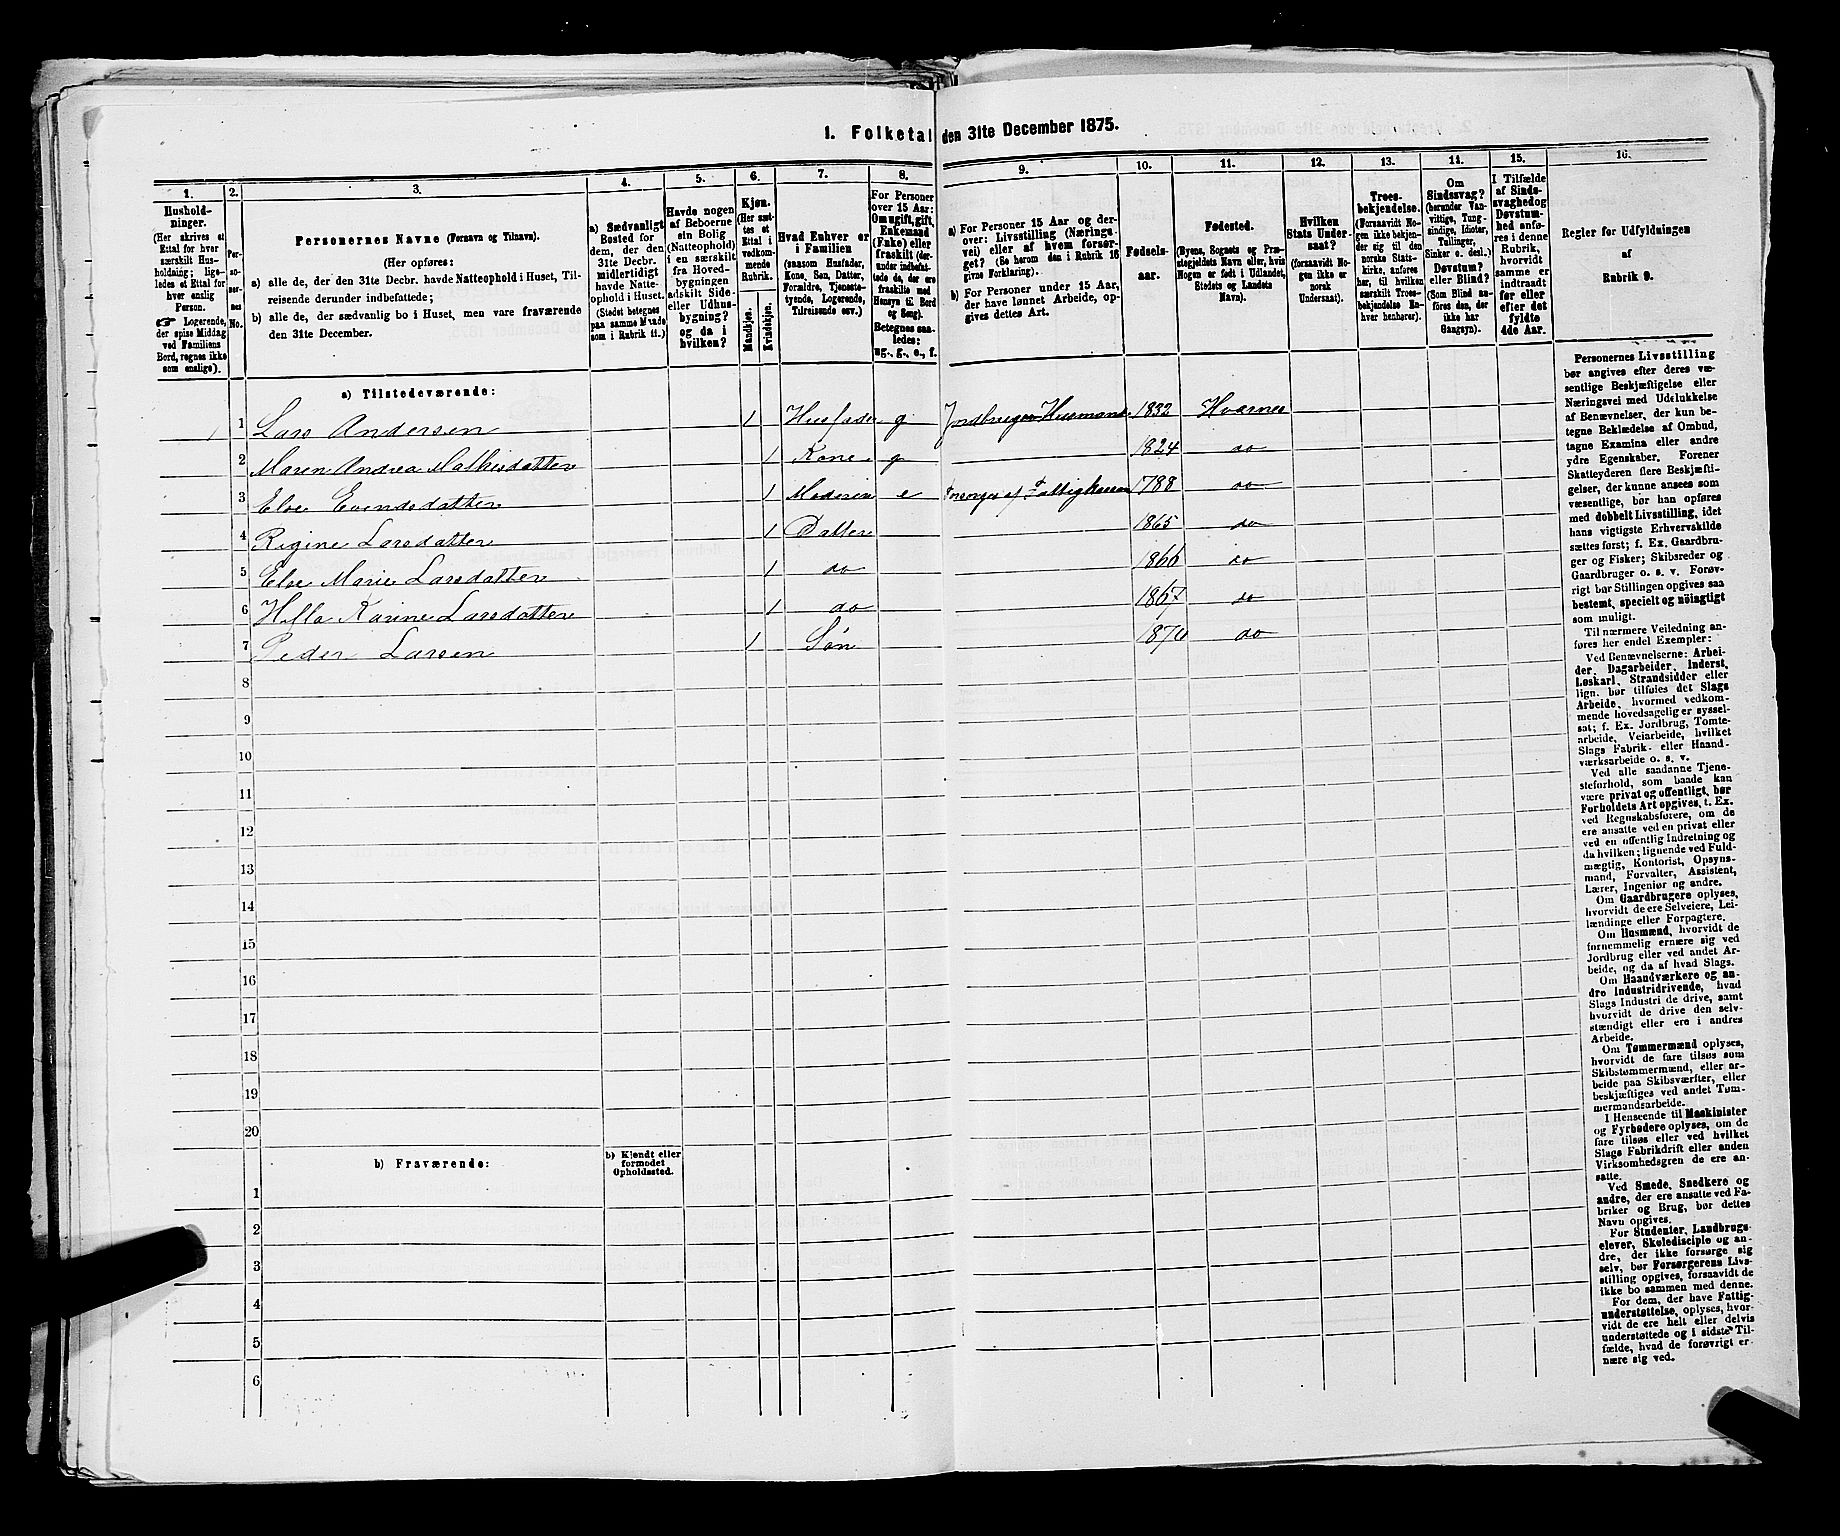 1. Folketal den 31te December 1875.
1.
Hushold-
ninger.
(Her skrives et
Ettal for hver
særskilt Hus-
holdning; lige-
ledes et Ettal for
hver enslig
Person.
☞ Logerende,
der spise Middag
ved Familiens
Bord, regnes ikke
som enslige).
2.
Per-
so-
ner-
nes
No.
3.
Personernes Navne (Fornavn og Tilnavn).
(Her opføres:
a) alle de, der den 31te Decbr. havde Natteophold i Huset, Til-
reisende derunder indbefattede;
b) alle de, der sædvanlig bo i Huset, men vare fraværende
den 31te December.
4.
a) Sædvanligt
Bosted for
dem, der den
31te Decbr.
midlertidigt
havde Natte-
ophold i Huset.
(Stedet betegnes
paa samme Maade
som i Rubrik 11.)
5.
Havde nogen
af Beboerne
sin Bolig
(Natteophold)
i en særskilt
fra Hoved-
bygningen
adskilt Side-
eller Udhus-
bygning?
og da i
hvilken?
6.
Kjøn.
(Her sæt-
tes et
Ettal i
vedkom-
mende
Rubrik.
Mandkjøn.
Kvindekjøn.
7.
Hvad Enhver er
i Familien
(saasom Husfader,
Kone, Søn, Datter,
Forældre, Tjeneste-
tyende, Logerende,
Tilreisende osv.)
8.
For Personer
over 15 Aar:
Om ugift, gift,
Enkemand
(Enke) eller
fraskilt (der-
under indbefat-
tede de, der ere
fraskilte med
Hensyn til Bord
og Seng).
Betegnes saa-
ledes:
ug., g., e., f.
9.
a) For Personer 15 Aar og der-
over: Livsstilling (Nærings-
vei) eller af hvem forsør-
get? (Se herom den i Rubrik 16
givne Forklaring).
b) For Personer under 15 Aar,
der have lønnet Arbeide, op-
gives dettes Art.
10.
Fødsels-
aar.
11.
Fødested.
(Byens, Sognets og Præ-
stegjeldets Navn eller, hvis
Nogen er født i Udlandet,
Stedets og Landets
Navn).
12.
Hvilken
Stats Under-
saat?
(foraavidt No-
gen ikke er
norsk
Undersaat).
13.
Troes-
bekjendelse.
(Forsaavidt No-
gen ikke bekjen-
der sig til den
norske Stats-
kirke, anføres
her, til hvilken
særskilt Troes-
bekjendelse En-
hver henhører).
14.
Om
Sindssvag?
(herunder Van-
vittige, Tung-
sindige, Idioter,
Tullinger,
Sinker o. desl.)
Døvstum?
eller Blind?
(Som Blind an-
føres den, der
ikke har
Gangsyn).
15.
I Tilfælde
af Sinds-
svaghed og
Døvstum-
hed anfø-
res i denne
Rubrik,
hvorvidt
samme er
indtraadt
før eller
efter det
fyldte
4de Aar.
16.
Regler for Udfyldningen
af
Rubrik 9.
a) Tilstedeværende:
1 1 Lars Andersen 1 Husfader g Jordbruger Husmand 1832 Hvarnes
2 Maren Andrea Mathisdatter 1 Kone g 1824 do
3 Else Evendsdatter 1 Moderen e Forsørges af Fattigkassen 1788 do
4 Rigine Larsdatter 1 Datter 1865 do
5 Else Marie Larsdatter 1 do 1866 do
6 Hella Karine Larsdatter 1 do 1867 do
7 Peder Larsen 1 Søn 1870 do
8
9
10
11
12
13
14
15
16
17
18
19
20
b) Fraværende:
b) Kjendt eller
formodet
Opholdssted.
1
2
3
4
5
6
Personernes Livsstilling
bør angives efter deres væ-
sentlige Beskjæftigelse eller
Næringsvei med Udelukkelse
af Benævnelser, der kun be-
tegne Beklædelse af Ombud,
tagne Examina eller andre
ydre Egenskaber. Forener
Skatteyderen flere Beskjæfti-
gelser, der kunne ansees som
væsentlige, bør han opføres
med dobbelt Livsstilling, idet
hans vigtigste Erhvervskilde
sættes først; f. Ex. Gaardbru-
ger og Fisker; Skibsreder og
Gaardbruger o. s. v. Forøv-
rigt bør Stillingen opgives saa
bestemt, specielt og nöiagtigt
som muligt.
Til nærmere Veiledning an-
føres her endel Exempler:
Ved Benævnelserne: Arbei-
der, Dagarbeider, Inderst,
Løskarl, Strandsidder eller
lign. bør tilføies det Slags
Arbeide, hvormed vedkom-
mende hovedsagelig er syssel-
sat; f. Ex. Jordbrug, Tomte-
arbeide, Veiarbeide, hvilket
Slags Fabrik- eller Haand-
værksarbeide o. s. v.
Ved alle saadanne Tjene-
steforhold, som baade kan
være privat og offentligt, bør
Forholdets Art opgives, t. Ex.
ved Regnskabsførere, om de
ere ansatte ved en privat eller
ved en offentlig Indretning og
da hvilken; lignende ved Fuld-
mægtig, Kontorist, Opsyns-
mand, Forvalter, Assistent,
Lærer, Ingeniør og andre.
Om Gaardbrugere oplyses,
hvorvidt de ere Selveiere, Lei-
lændinge eller Forpagtere.
Om Husmænd, hvorvidt de
fornemmelig ernære sig ved
Jordbrug eller ved andet Ar-
beide, og da af hvad Slags.
Om Haandværkere og an-
dre Industridrivende, hvad
Slags Industri de drive, samt
hvorvidt de drive den selv-
stændigt eller ere i andres
Arbeide.
Om Tømmermænd oplyses,
hvorvidt de fare tilsøs som
Skibstømmermænd, eller ar-
beide paa Skibsværfter, eller
beskjæftiges ved andet Tøm-
mermandsarbeide.
I Henseende til Maskinister
og Fyrbødere oplyses, om de
fare tilsøs eller ved hvilket
Slags Fabrikdrift eller anden
Virksomhedsgren de ere an-
satte.
Ved Smede, Snedkere og
andre, der ere ansatte ved Fa-
briker og Brug, bør dettes
Navn opgives.
For Studenter, Landbrugs-
elever, Skoledisciple og an-
dre, der ikke forsørge sig
selv, bør Forsørgerens Livs-
stilling opgives, forsaavidt de
ikke bo sammen med denne.
For dem, der have Fattig-
understøttelse, oplyses, hvor-
vidt de ere helt eller delvis
understøttede og i sidste Til-
fælde, hvad de forøvrigt er-
nære sig ved.